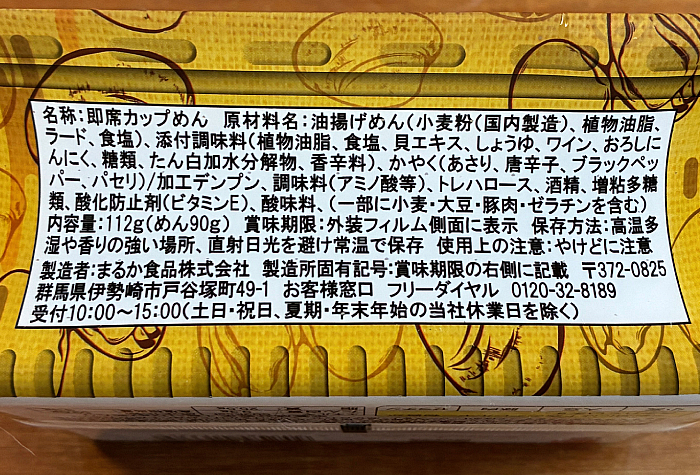 名称:即席カップめん 原材料名:油揚げめん(小麦粉(国内製造)、植物油脂、
ラード、食塩)、添付調味料(植物油脂、食塩、貝エキス、しょうゆ、ワイン、おろしに
んにく、糖類、たん白加水分解物、香辛料)、かやく(あさり、唐辛子、ブラックペッ
パー、パセリ)/加工デンプン、調味料(アミノ酸等)、トレハロース、酒精、増粘多糖
類、酸化防止剤(ビタミンE)、酸味料、(一部に小麦・大豆・豚肉・ゼラチンを含む)
内容量:112g(めん90g) 賞味期限:外装フィルム側面に表示 保存方法:高温多
湿や香りの強い場所、直射日光を避け常温で保存 使用上の注意:やけどに注意
製造者:まるか食品株式会社 製造所固有記号:賞味期限の右側に記載 〒372-0825
群馬県伊勢崎市戸谷塚町49-1 お客様窓口 フリーダイヤル 0120-32-8189
受付10:00〜15:00(土日・祝日、夏期・年末年始の当社休業日を除く)